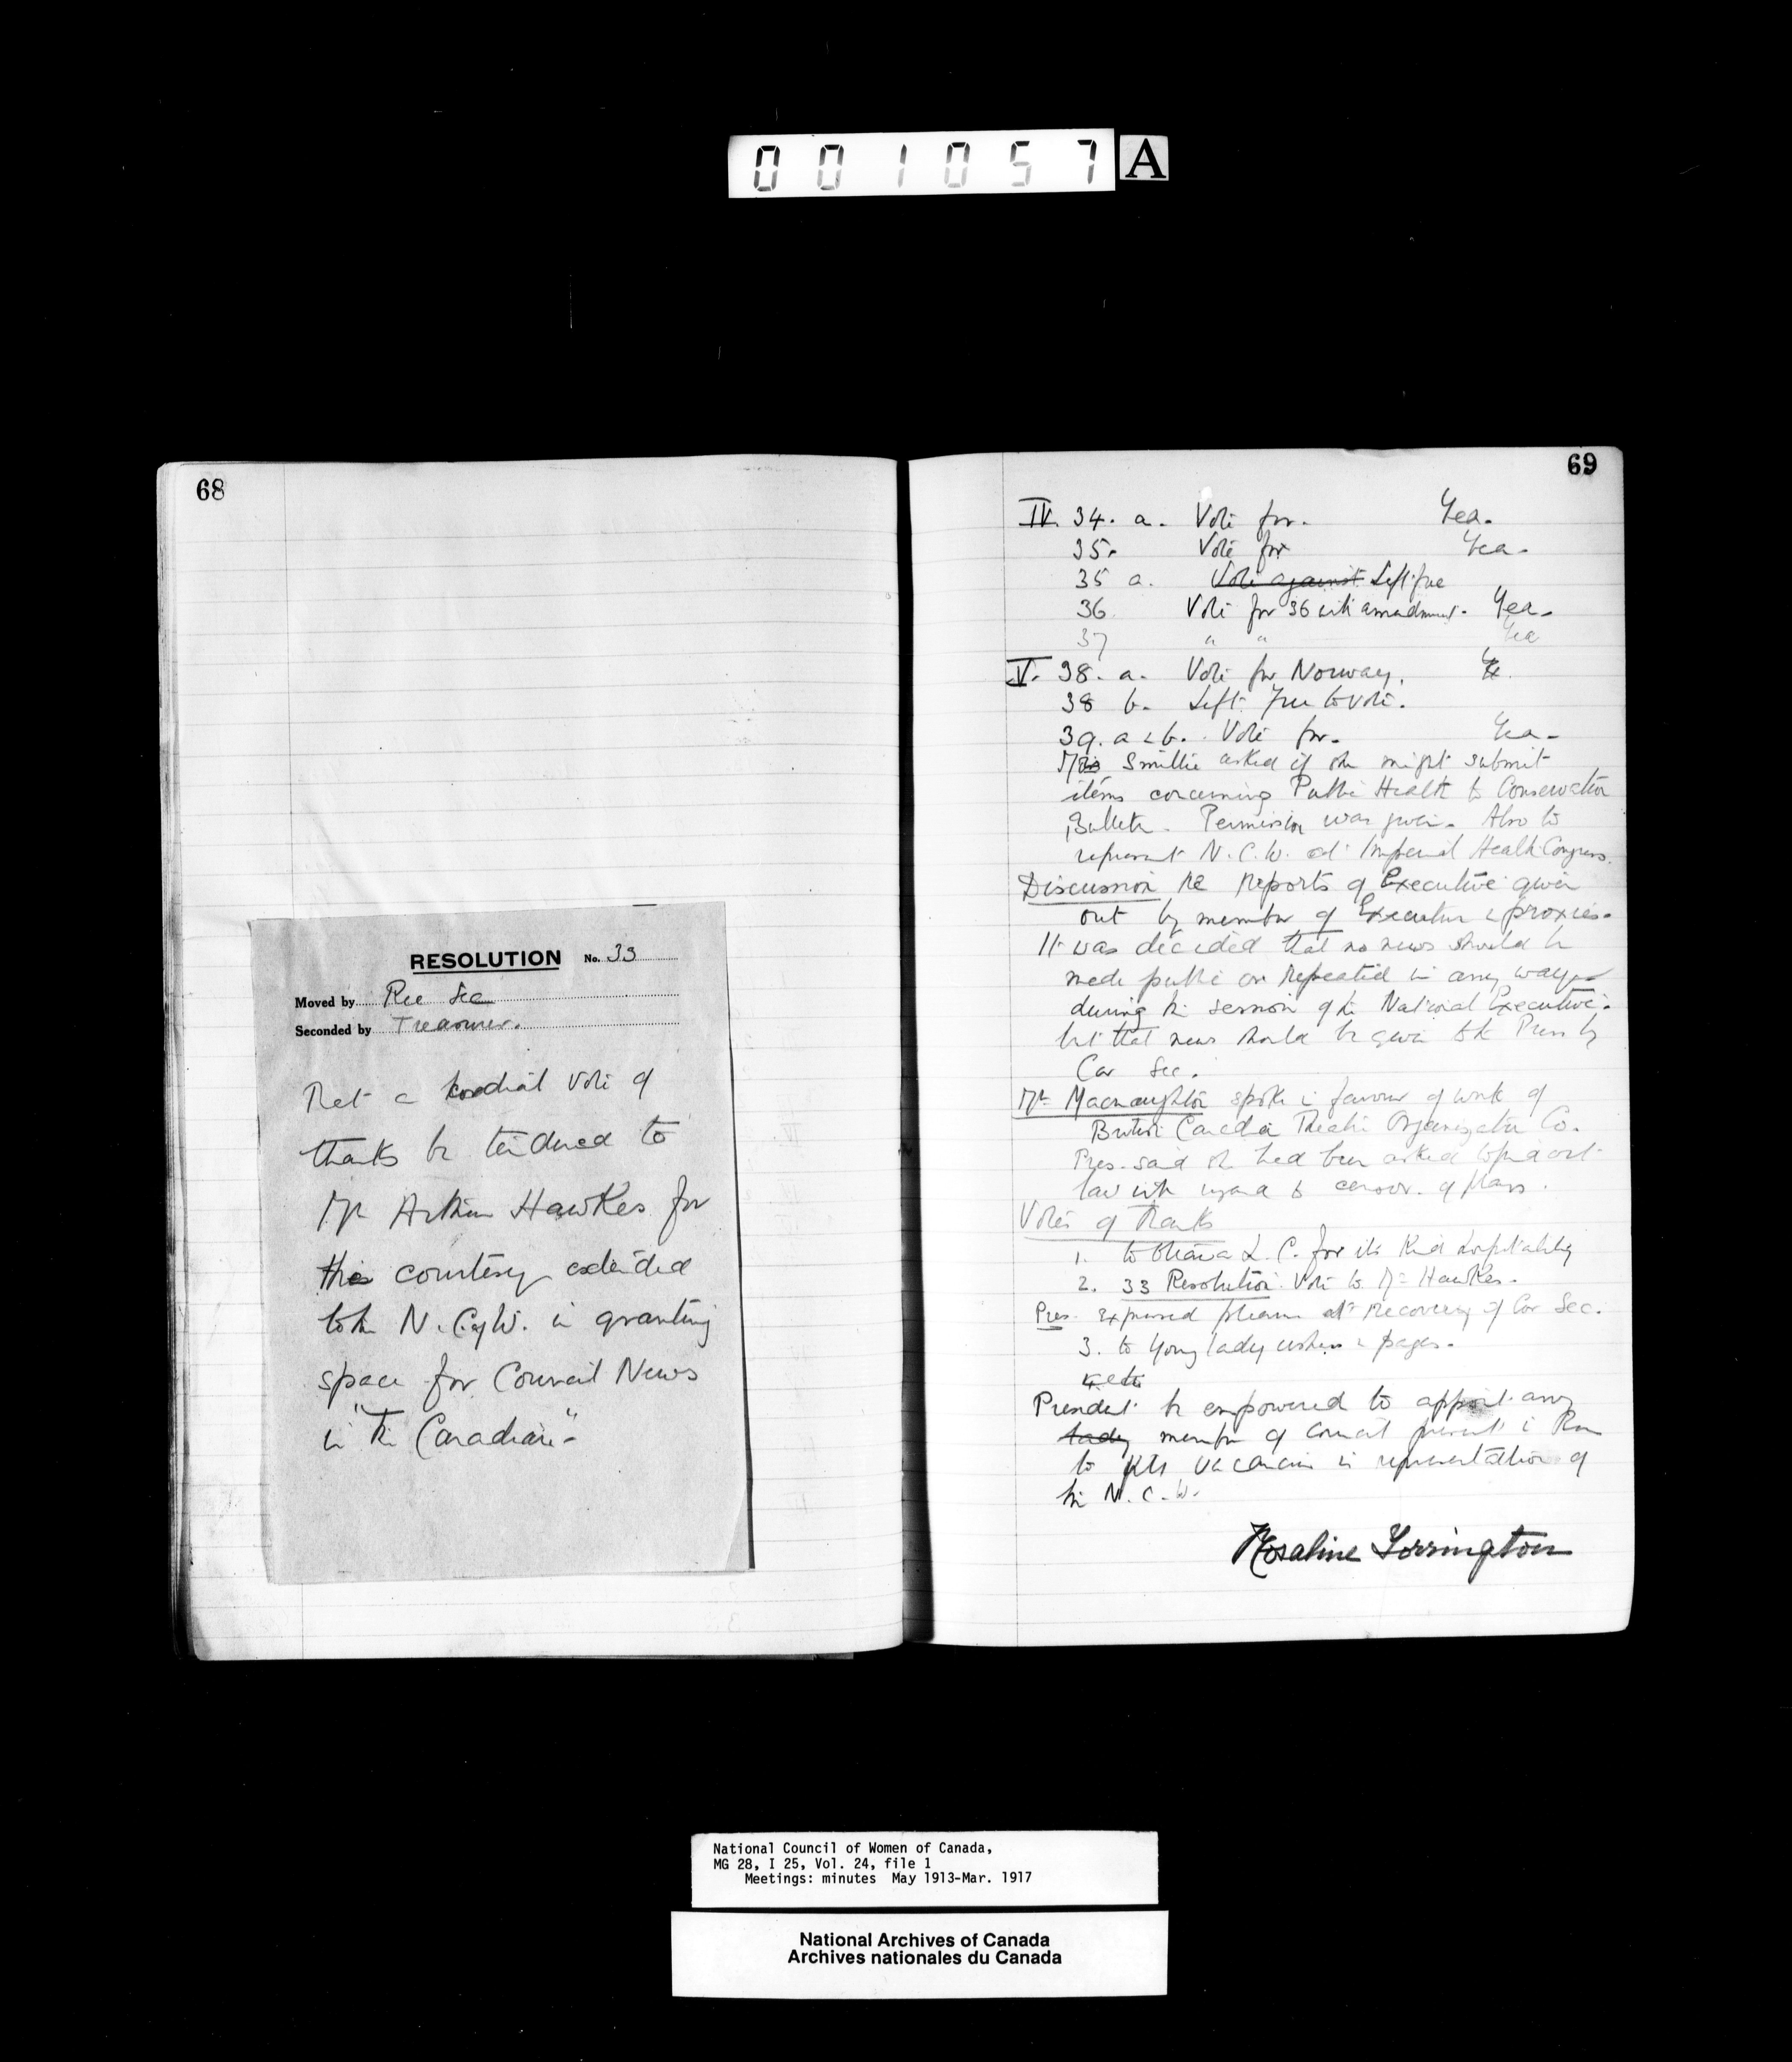 001057 A
68
RESOLUTION No. 33
Moved by Rec Sec
Seconded by Treasurer.
That a cordial vote of
thanks be tendered to
Mr Arthur Hawkes for
the courtesy extended
to the N.C.of W. in granting
space for Council News
in "The Canadian"-
69
IV. 34. a. Vote for. Yea.
35. Vote for Yea.
35 a. Vote against Left free
36. Vote for 36 with amendment. Yea.
37 " " Yea
V. 38. a. Vote for Norway.
38 b. Left free to vote.
39. a & b. Vote for. Yea.
Smillie asked if she might submit
items concerning Public Health to Conservation
Bulletin. Permission was given. Also to
represent N.C.W. at Imperial Health Congress.
Discussion re reports of Executive given
out by member of Executive & proxies.
It was decided that no news should be
made public or repeated in any way
during the session of the National Executive.
but that news should be given to the Press by
Cor Sec.
Macnaughton spoke in favour of work of
British Canadian Theatre Organization Co.
Pres. said she had been asked to find out
law with regard to censor. of plays.
Votes of Thanks
1. to Ottawa L.C. for its kind hospitality
2. 33 Resolution. Vote to Mr Hawkes.
Pres. expressed pleasure at recovery of Cor Sec.
3. to young lady ushers & pages.
President be empowered to appoint any
lady member of Council present in Rome
to fill vacancies in representation of
the N.C.W.
Rosaline Torrington
National Council of Women of Canada,
MG 28, I 25, Vol. 24, file 1
Meetings: minutes May 1913-Mar. 1917
National Archives of Canada
Archives nationales du Canada